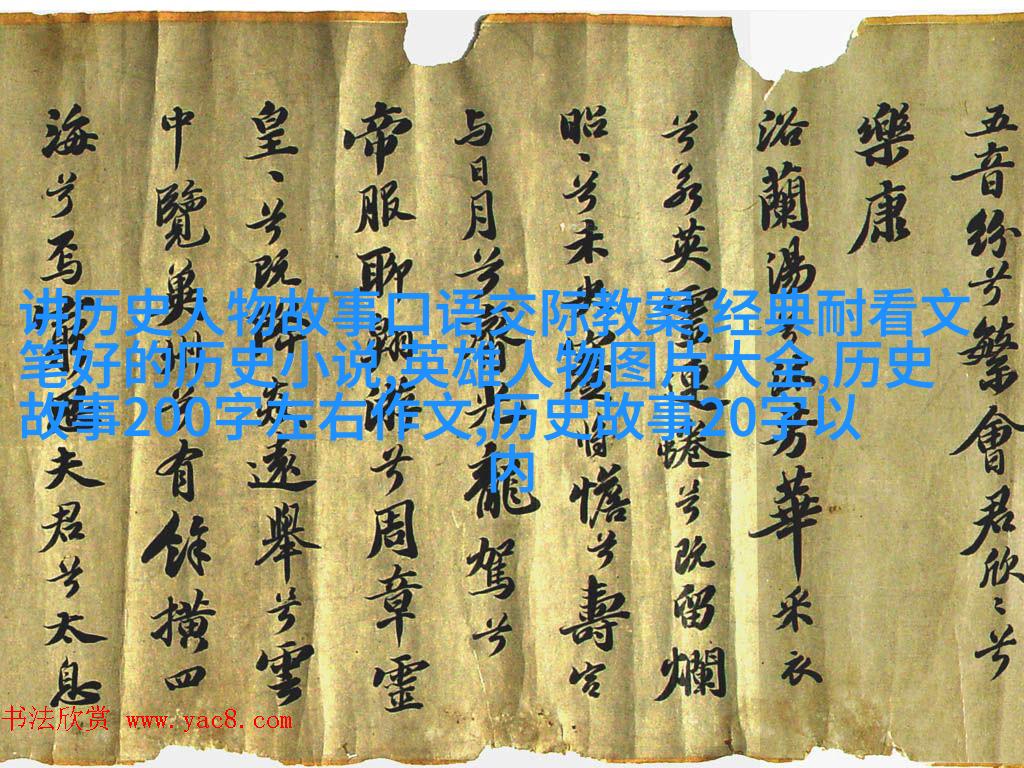 五音紛兮繁會君欣、兮
樂康
浴蘭湯兮芳華采衣
兮若英靈連蜷兮既留爛
昭、兮未央憺兮壽宮
与日月兮齊光龍駕兮
帝服聊翱遊兮周章靈
皇、兮既降遠舉兮雲
中覽冀州兮有餘橫四
海兮焉夫君兮太息
讲历史人物故事口语交际教案,经典耐看文
笔好的历史小说,英雄人物图片大全,历史
故事200字左右作文,历史故事20字以
内
书法欣赏 www.yac8.com